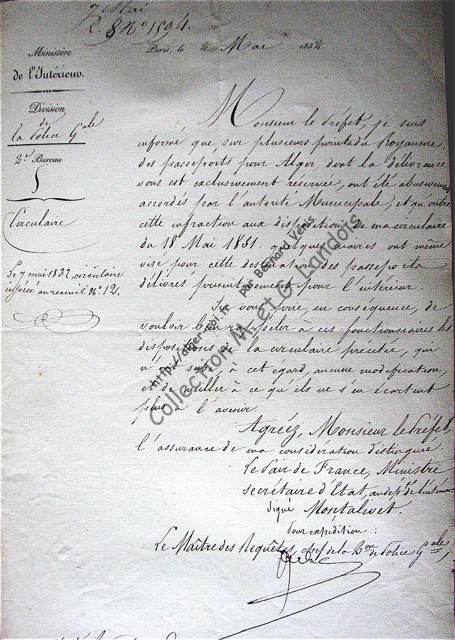 7 Mai
R. 8 No 1594.
Paris, le 2 Mai 1832
Ministère
de l'Intérieur.
Division
de
la Police Gale
2e Bureau
Circulaire
Le 7 mai 1832, circulaire
insérée au recueil No 12.
Monsieur le Préfet, je suis
informé que sur plusieurs points du Royaume
des passeports pour Alger dont la délivrance
vous est exclusivement réservée, ont été abusivement
accordés par l'autorité Municipale; et qu'outre
cette infraction aux dispositions de ma circulaire
du 18 Mai 1831. quelques maires ont même
visé pour cette destination des passeports
délivrés primitivement pour l'intérieur
Je vous prie, en conséquence, de
vouloir bien rappeler à ces fonctionnaires les
dispositions de la circulaire précitée, qui
n'a subi, à cet égard, aucune modification,
et de veiller à ce qu'ils ne s'en écartent
pour l'avenir.
Agréez, Monsieur le Préfet,
l'assurance de ma considération distinguée.
Le Pair de France, Ministre
secrétaire d'Etat, au dépt de l'intérieur
signé Montalivet.
Pour expédition:
Le Maître des Requêtes, chef de la Don de Police Gale,
http://alger-roi.fr par Bernard Venis
Collection M. et G. Langlois